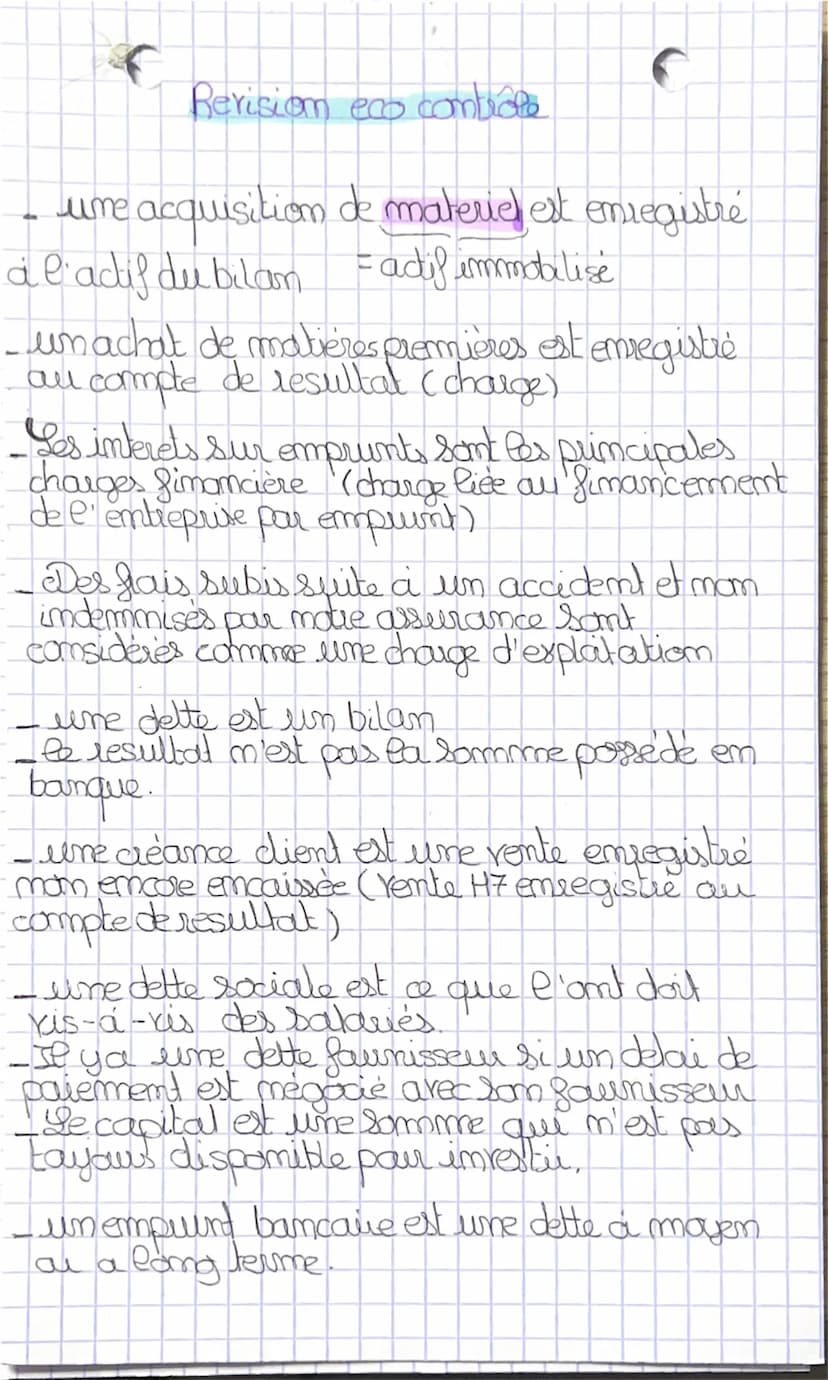 Revision eco contrôle
- une acquisition de materiel est enregistré
à l'actif du bilan = actif immobilisé
- un achat de matières premières est enregistré
au compte de resultat (charge)
- Les interets sur emprunts sont les principales
charges financière (charge liée au financement
de l'entreprise par emprunt)
- Des frais subis suite à un accident et non
indemnisés par notre assurance sont
considérés comme une charge d'exploitation
- une dette est un bilan
- le resultat n'est pas la somme possédé en
banque.
- une créance client est une vente enregistré
non encore encaissée (vente H7 enregistré au
compte de resultat)
- une dette sociale est ce que l'ont doit
vis-à-vis des salariés.
- Il y a une dette fournisseur si un delai de
paiement est négocié avec son fournisseur
- Le capital est une somme qui n'est pas
toujours disponible pour investir.
- un emprunt bancaire est une dette à moyen
ou a long terme.